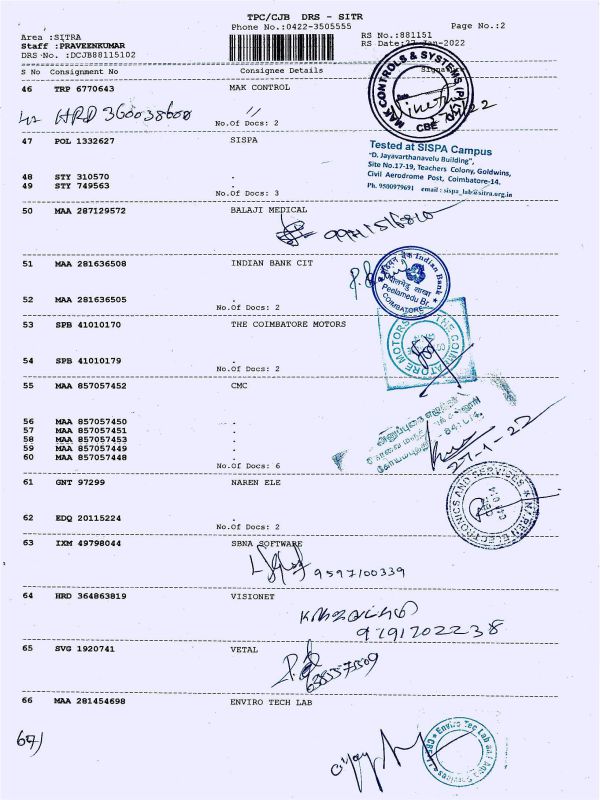 TPC/CJB DRS - SITR
Phone No.:0422-3505555 Page No.:2
Area :SITRA RS No.:881151
Staff :PRAVEENKUMAR RS Date:27-Jan-2022
DRS No. :DCJB88115102
S No Consignment No Consignee Details Signature
46 TRP 6770643 MAK CONTROL
HRD 360038600 "
No.Of Docs: 2
MAK CONTROLS & SYSTEMS (P)
CBE
47 POL 1332627 SISPA
Tested at SISPA Campus
"D. Jayavarthanavelu Building",
Site No.17-19, Teachers Colony, Goldwins,
Civil Aerodrome Post, Coimbatore-14.
Ph. 9500979691 email : sispa_lab@sitra.org.in
48 STY 310570 .
49 STY 749563 .
No.Of Docs: 3
50 MAA 287129572 BALAJI MEDICAL
51 MAA 281636508 INDIAN BANK CIT
Indian Bank
Peelamedu Br.
COIMBATORE
52 MAA 281636505 .
No.Of Docs: 2
53 SPB 41010170 THE COIMBATORE MOTORS
THE COIMBATORE MOTORS
54 SPB 41010179 .
No.Of Docs: 2
55 MAA 857057452 CMC
56 MAA 857057450 .
57 MAA 857057451 .
58 MAA 857057453 .
59 MAA 857057449 .
60 MAA 857057448 .
No.Of Docs: 6
27-1-22
61 GNT 97299 NAREN ELE
NAREN ELECTRONICS AND SERVICES
62 EDQ 20115224 .
No.Of Docs: 2
63 IXM 49798044 SBNA SOFTWARE
9597100339
64 HRD 364863819 VISIONET
9791702238
65 SVG 1920741 VETAL
66 MAA 281454698 ENVIRO TECH LAB
67)